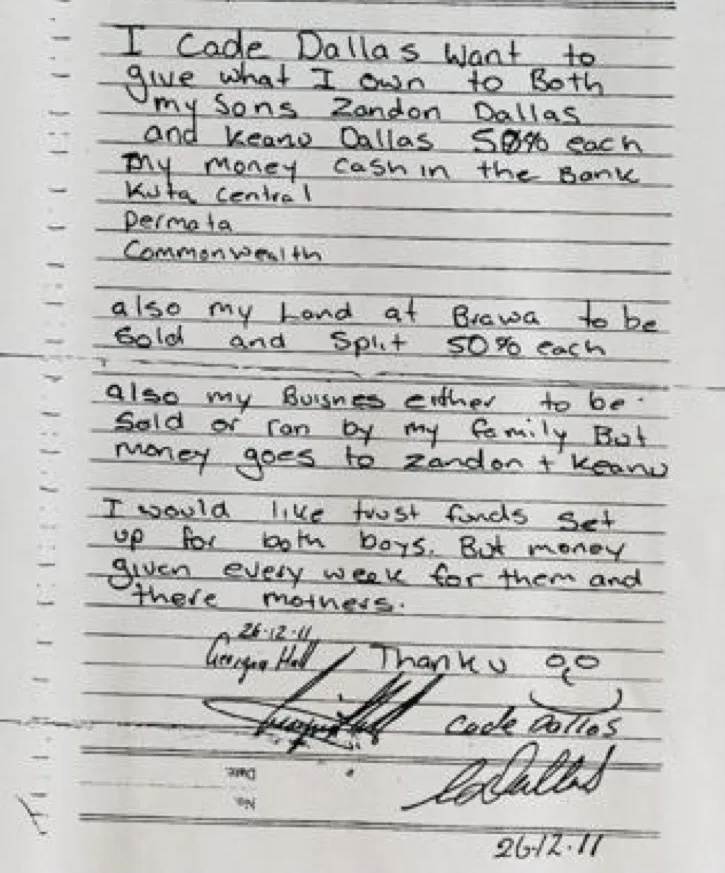 I Cade Dallas want to
give what I own to Both
my Sons Zandon Dallas
and Keanu Dallas 50% each
my money cash in the Bank
Kuta Central
Permata
Commonwealth
also my Land at Brawa to be
Sold and Split 50% each
also my Buisnes either to be
Sold or ran by my family But
money goes to Zandon + Keanu
I would like trust funds set
up for both boys. But money
given every week for them and
there mothers.
26-12-11
Georgia Hall Thank u
Cade Dallas
Date:
No.
26-12-11